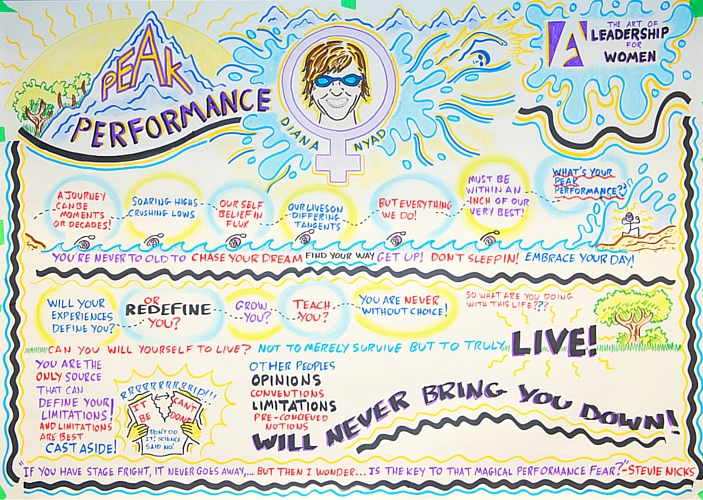 PEAK
PERFORMANCE
DIANA NYAD
A
THE ART OF
LEADERSHIP
FOR
WOMEN
A JOURNEY
CAN BE
MOMENTS
OR DECADES!
SOARING HIGHS
CRUSHING LOWS
OUR SELF
BELIEF IN
FLUX
OUR LIVES ON
DIFFERING
TANGENTS
BUT EVERYTHING
WE DO!
MUST BE
WITHIN AN
INCH OF OUR
VERY BEST!
WHAT'S YOUR
PEAK
PERFORMANCE?
YOU'RE NEVER TO OLD TO CHASE YOUR DREAM FIND YOUR WAY GET UP! DON'T SLEEP IN! EMBRACE YOUR DAY!
WILL YOUR
EXPERIENCES
DEFINE YOU?
OR
REDEFINE
YOU?
GROW
YOU?
TEACH
YOU?
YOU ARE NEVER
WITHOUT CHOICE!
SO WHAT ARE YOU DOING
WITH THIS LIFE???
CAN YOU WILL YOURSELF TO LIVE? NOT TO MERELY SURVIVE BUT TO TRULY... LIVE!
YOU ARE THE
ONLY SOURCE
THAT CAN
DEFINE YOUR
LIMITATIONS!
AND LIMITATIONS
ARE BEST
CAST ASIDE!
IT CAN'T
BE DONE
DON'T DO
IT! SCIENCE
SAID NO!
OTHER PEOPLES
OPINIONS
CONVENTIONS
LIMITATIONS
PRE-CONCIEVED
NOTIONS
WILL NEVER BRING YOU DOWN!
"IF YOU HAVE STAGE FRIGHT, IT NEVER GOES AWAY,... BUT THEN I WONDER... IS THE KEY TO THAT MAGICAL PERFORMANCE FEAR?"-STEVIE NICKS